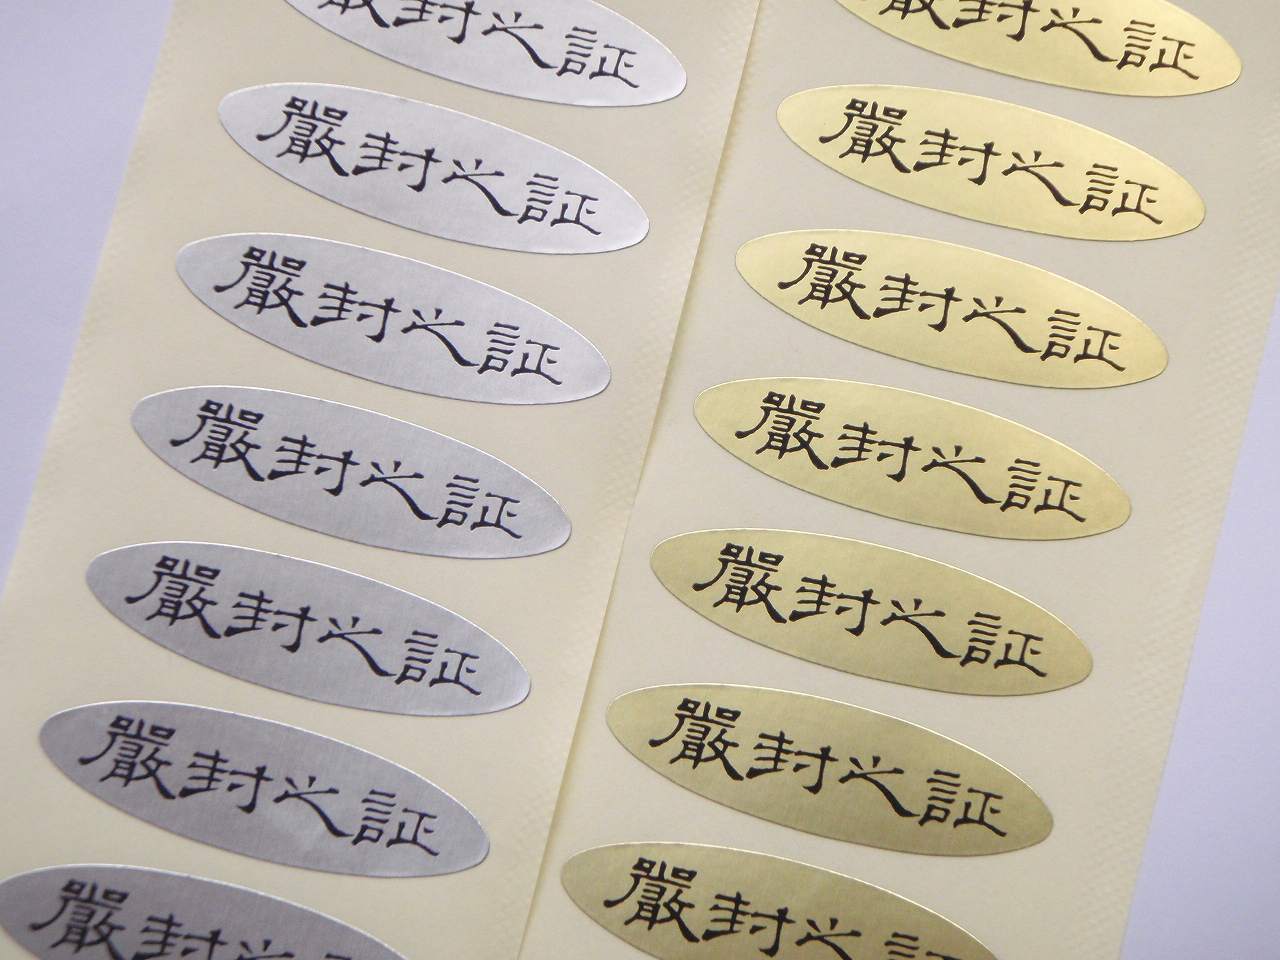 嚴封之証
嚴封之証
嚴封之証
嚴封之証
嚴封之証
嚴封之証
嚴封之
嚴封之証
嚴封之証
嚴封之証
嚴封之証
嚴封之証
嚴封之証
嚴封之